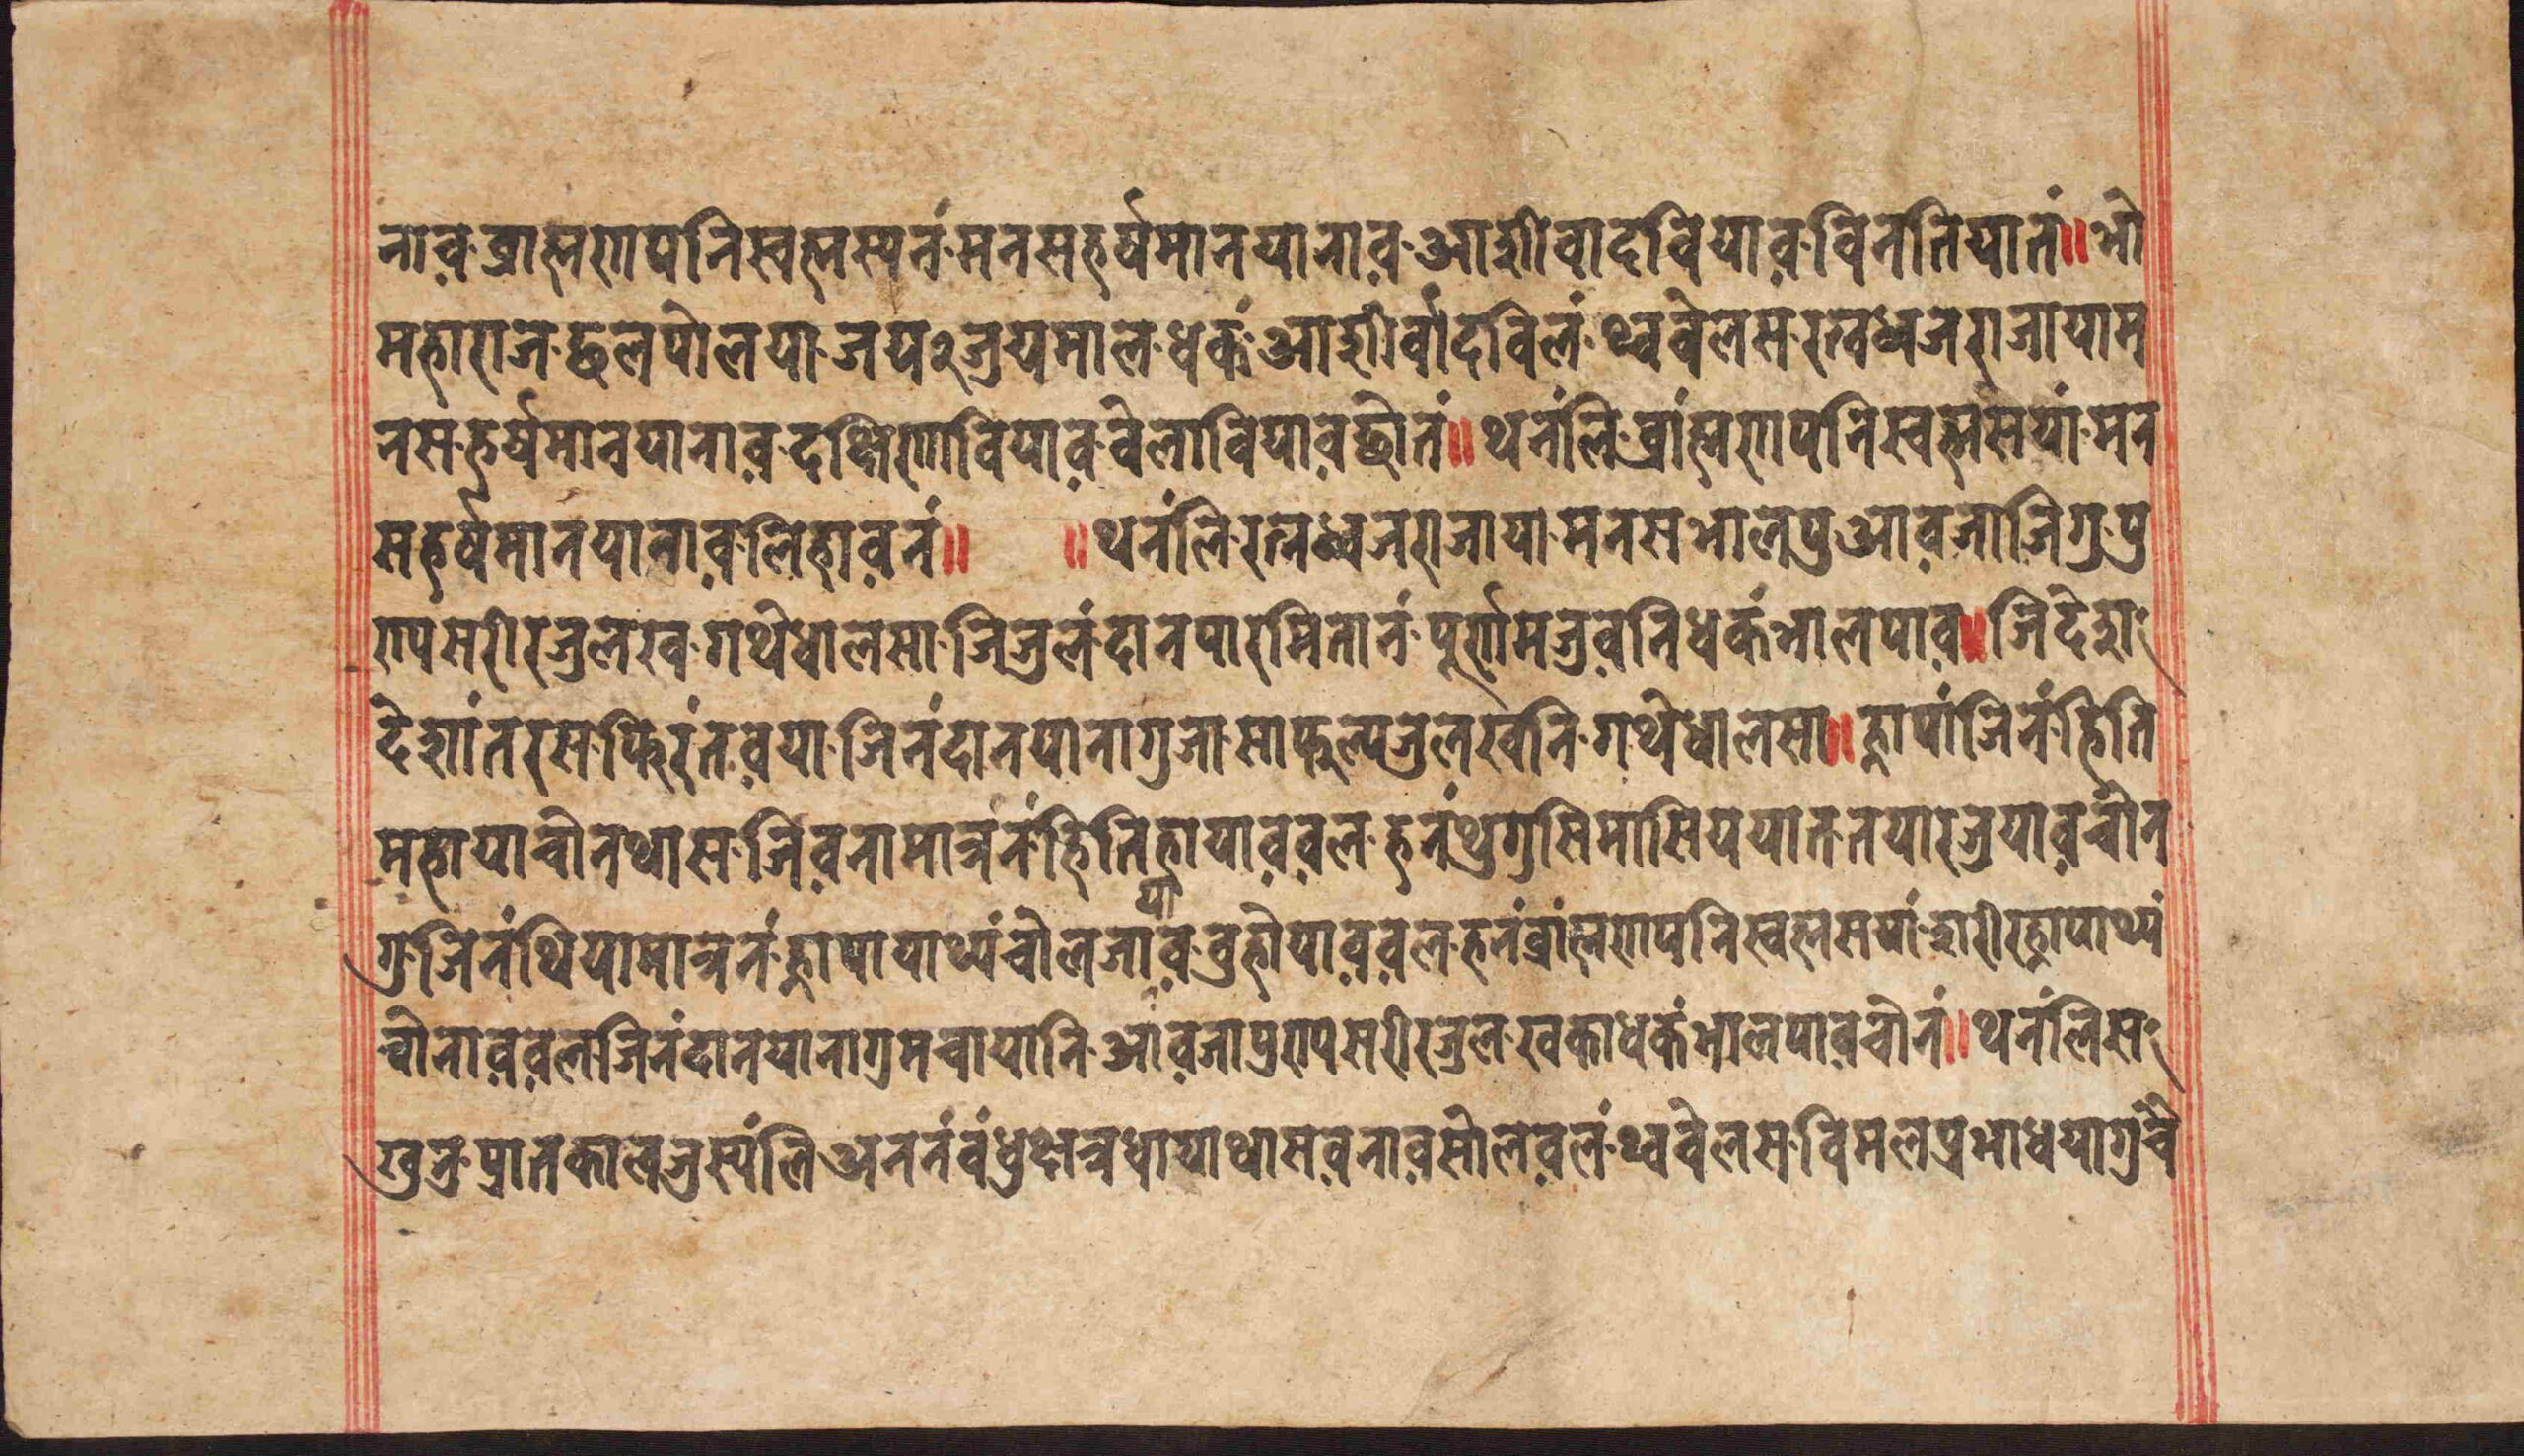 नाव़ ब्राह्मणपनिस्वह्मस्यनं मनस हर्षमानयानाव़ आशीवादवियाव़ विनतियातं॥ भो
महाराज छलपोलया जय२ जुयमाल धकं आशीर्वादविलं थ्ववेलस रत्नध्वजराजायाम
नस हर्षमानयानाव़ दक्षिणावियाव़ वेलावियाव़ छोतं॥ थनंलि ब्रांह्मणपनिस्वह्मसयां मन
स हर्षमानयानाव़ लिहाव़नं॥ ॥थनंलि रत्नध्वजराजाया मनस भालपु आव़ जा जिगु पु
ण्यसरीर जुल खव गथे धालसा जि जुलं दानपारमितानं पूर्णमजुव़नि धकं भालपाव़॥ जि देश
देशांतरस फिरंतव़या जिनं दानयानागु जा साफल्प जुल खनि गथे धालसा॥ ह्नापां जिनं हिति
मह्राया चोनथास जिव़नामात्रनं हितिह्राया व़व़ल हनं थुगुसिमा सिययातनयारजुयाव़ चोन
गु जिनं थियामात्रनं ह्नापायाथ्यं चोलजायाव़ वुहोयाव़व़ल हनं ब्रांह्मणपनिस्वह्मसयां शरीर ह्नापाथ्यं
चोनाव़व़ल जिनं दानयानागु मचायानि आव़ जा पुण्यसरीर जुल खका धकं भालपाव़ चोनं॥ थनंलि स
खुनु प्रातकाल जुस्यंलि अननं वंधुक्षत्रधायाथास व़नाव़ सोलव़लं थ्ववेलस विमलप्रभाधयागु चै